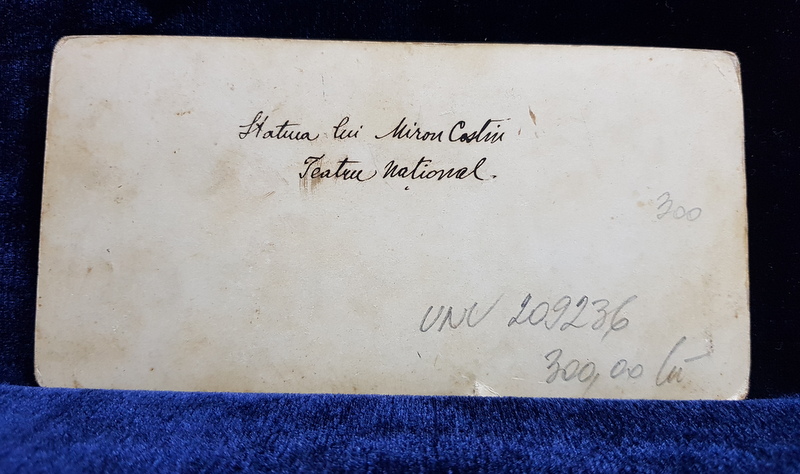 Statuia lui Miron Costin
Teatru Național.
300
UNV 209236
300,00 lei